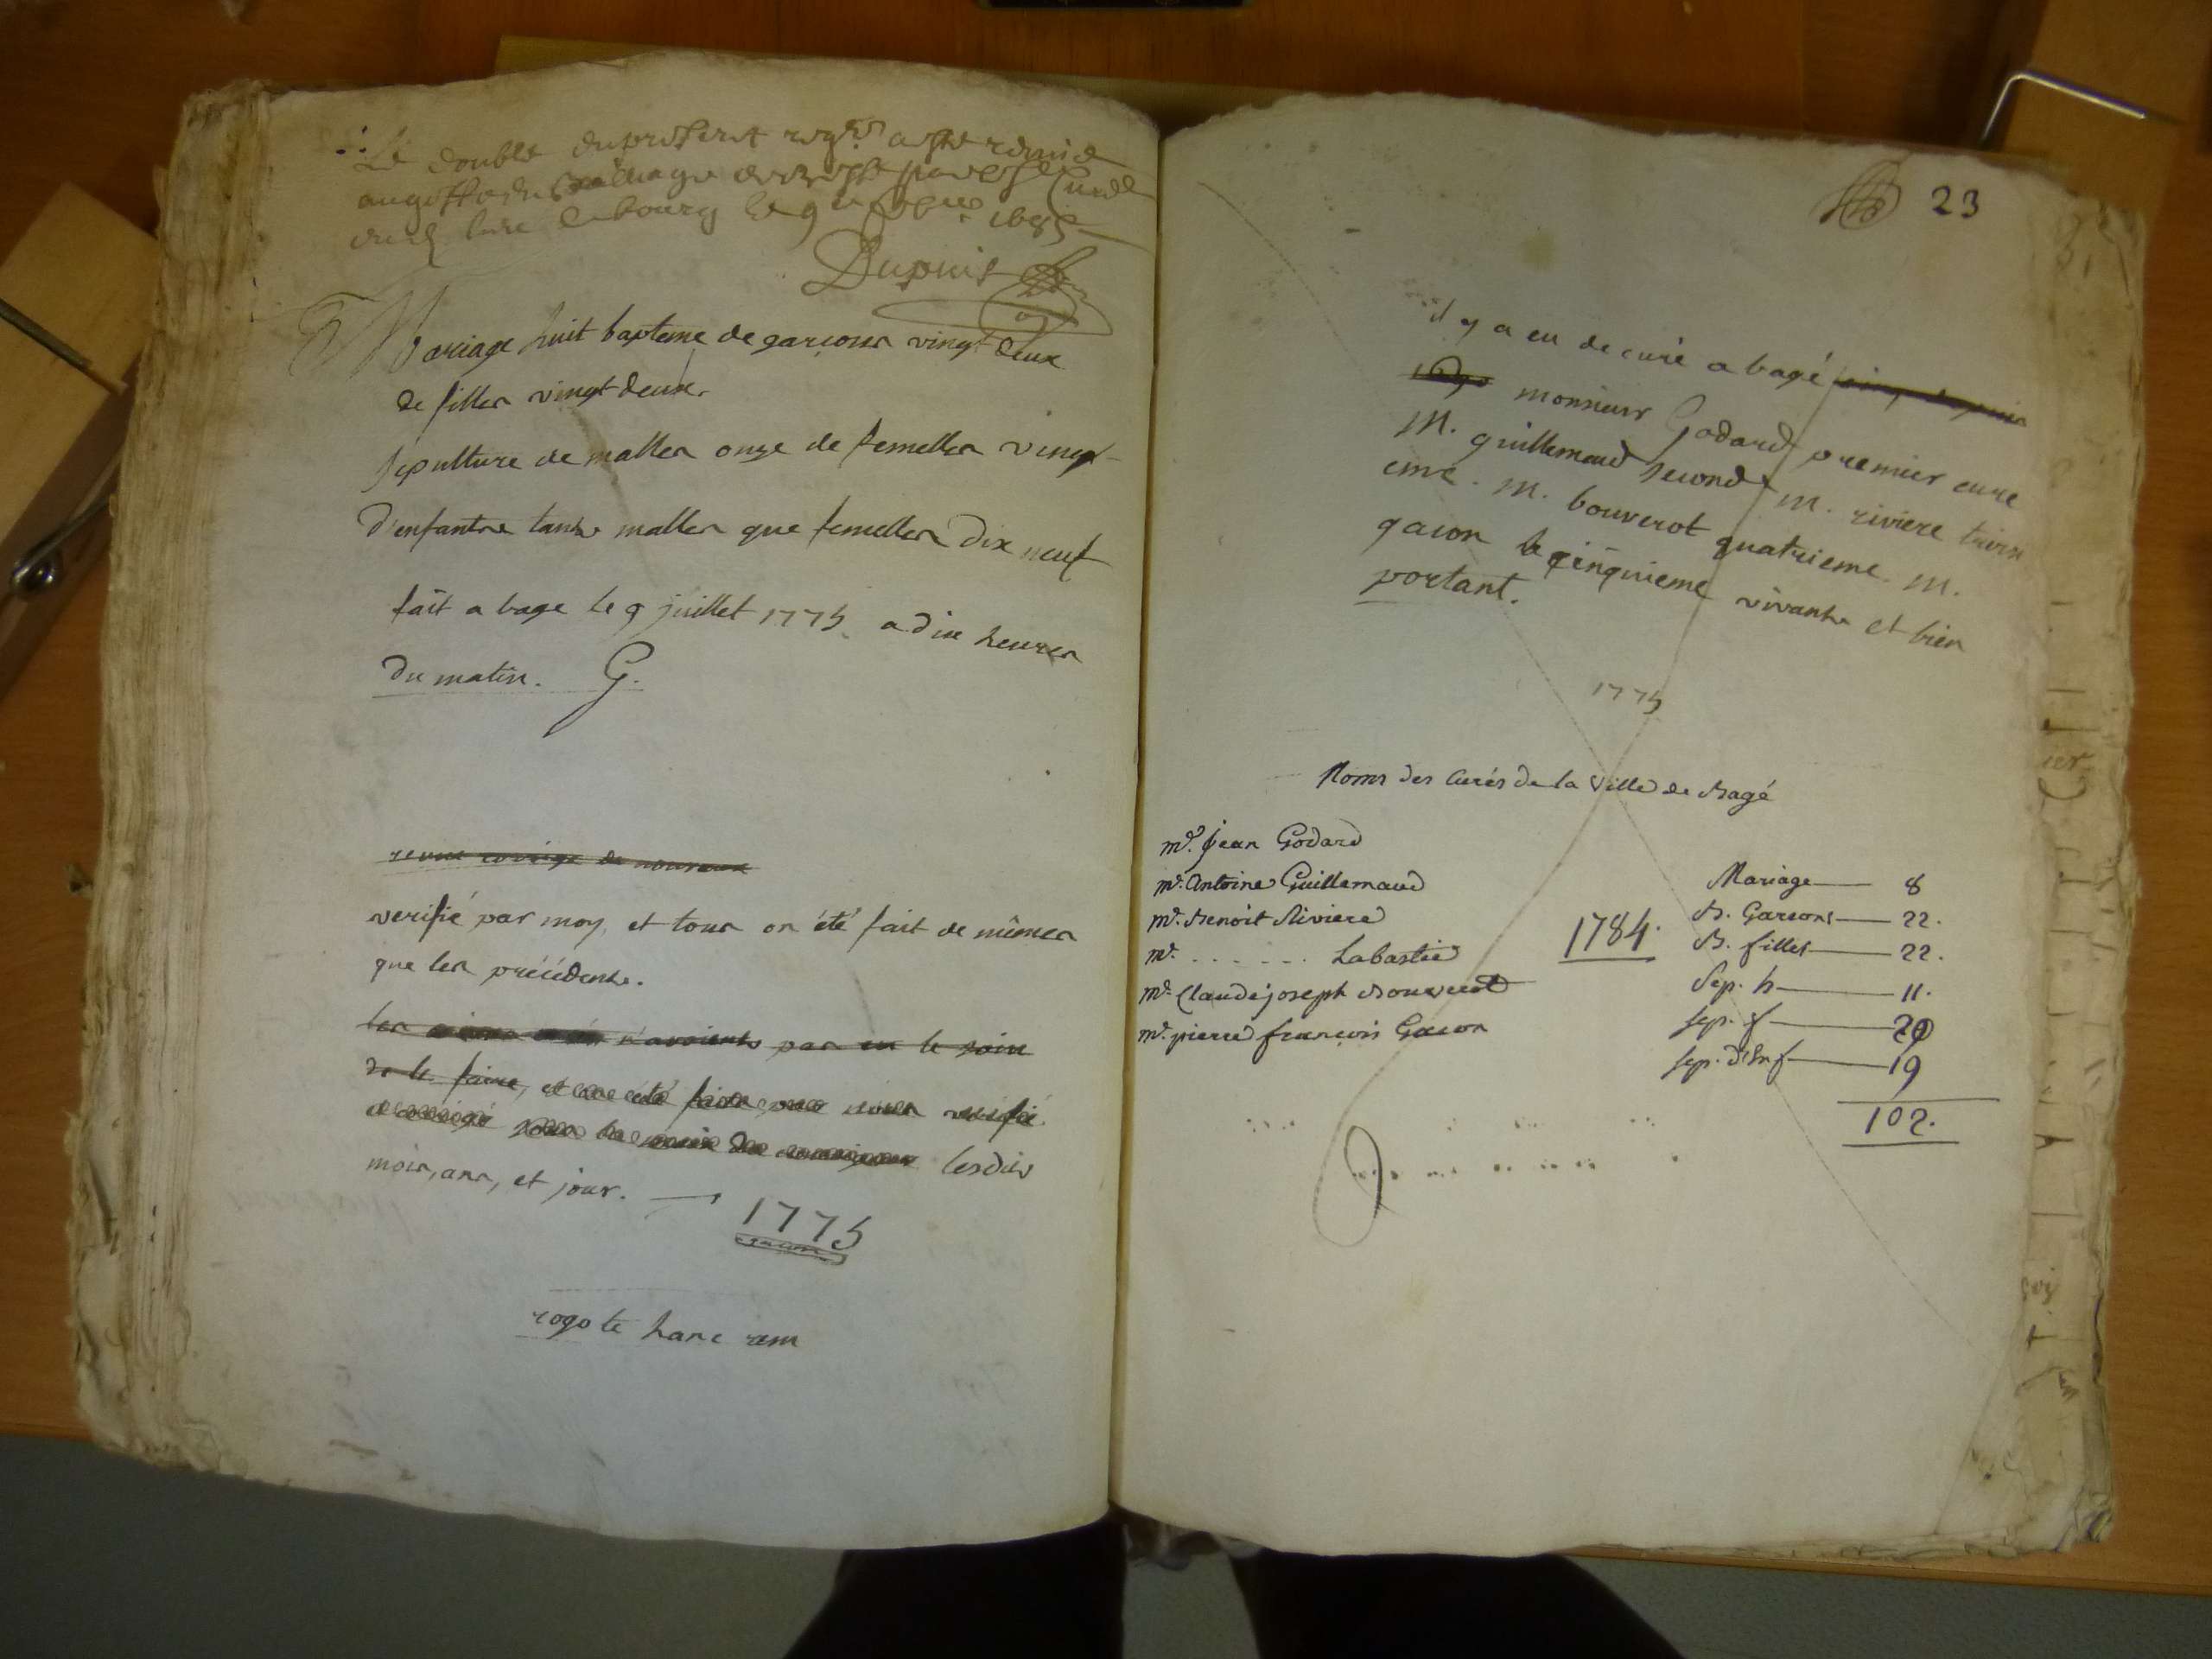 Le double du present regre a esté remis
au greffe du Bailliage
de bourg le 9e 1685
Dupuis
Mariage huit bapteme de garçons vingt deux
de filles vingt deux.
sepulture de malles onze de femelles vingt
d'enfants tants malles que femelles dix neuf
fait a bage le 9 juillet 1775 a dix heures
du matin. G.
revue corrige de nouveau
verifié par moy, et tous on été fait de mêmes
que les précédents.
les n'avoients pas eu le soin
de le faire, et été faite verifié
lesdits
mois, ans, et jour.
1775
rogo te hanc rem
23
il y a eu de curé a bagé cinq depuis
monsieur Godard premier cure
M. guillemaud second M. riviere troisi
eme. M. bouverot quatrieme. M.
gacon le cinquieme vivants et bien
portant.
1775
Noms des Curés de la Ville de Bagé
mr. jean Godard
mr. Antoine Guillemaud
mr. Benoit Riviere
mr. . . . . . . Labastie
mr. Claude joseph Bouverot
mr. pierre françois Gacon
1784.
Mariage 8
B. Garcons 22.
B. filles 22.
Sep. h 11.
sep. f 20
sep. d'Enf 19
102.